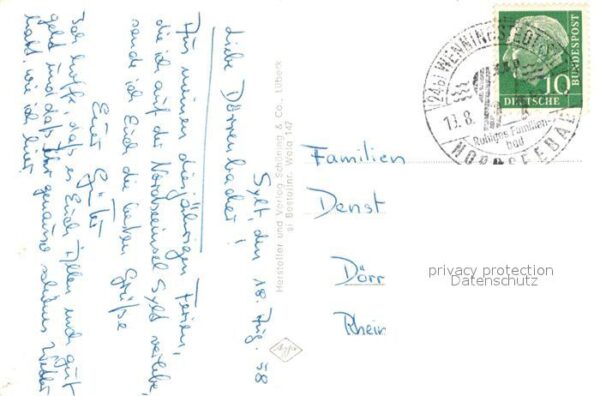 Sylt, den 18. Aug. 58
Liebe Dörrenbacher!
Aus meinen diesjährigen Ferien,
die ich auf der Nordseeinsel Sylt verlebe,
sende ich Euch die besten Grüße
Euer Günter
Ich hoffe, daß es Euch Allen noch gut
geht und daß Ihr genauso schönes Wetter
habt, wie ich hier.
Hersteller und Verlag Schöning & Co., Lübeck
Bestellnr. 147
Agfa
(24b) WENNINGSTEDT
Ruhiges Familien-
bad
NORDSEEBAD
DEUTSCHE
BUNDESPOST
10
Familien
Denst
Dörr
Rhein
privacy protection
Datenschutz